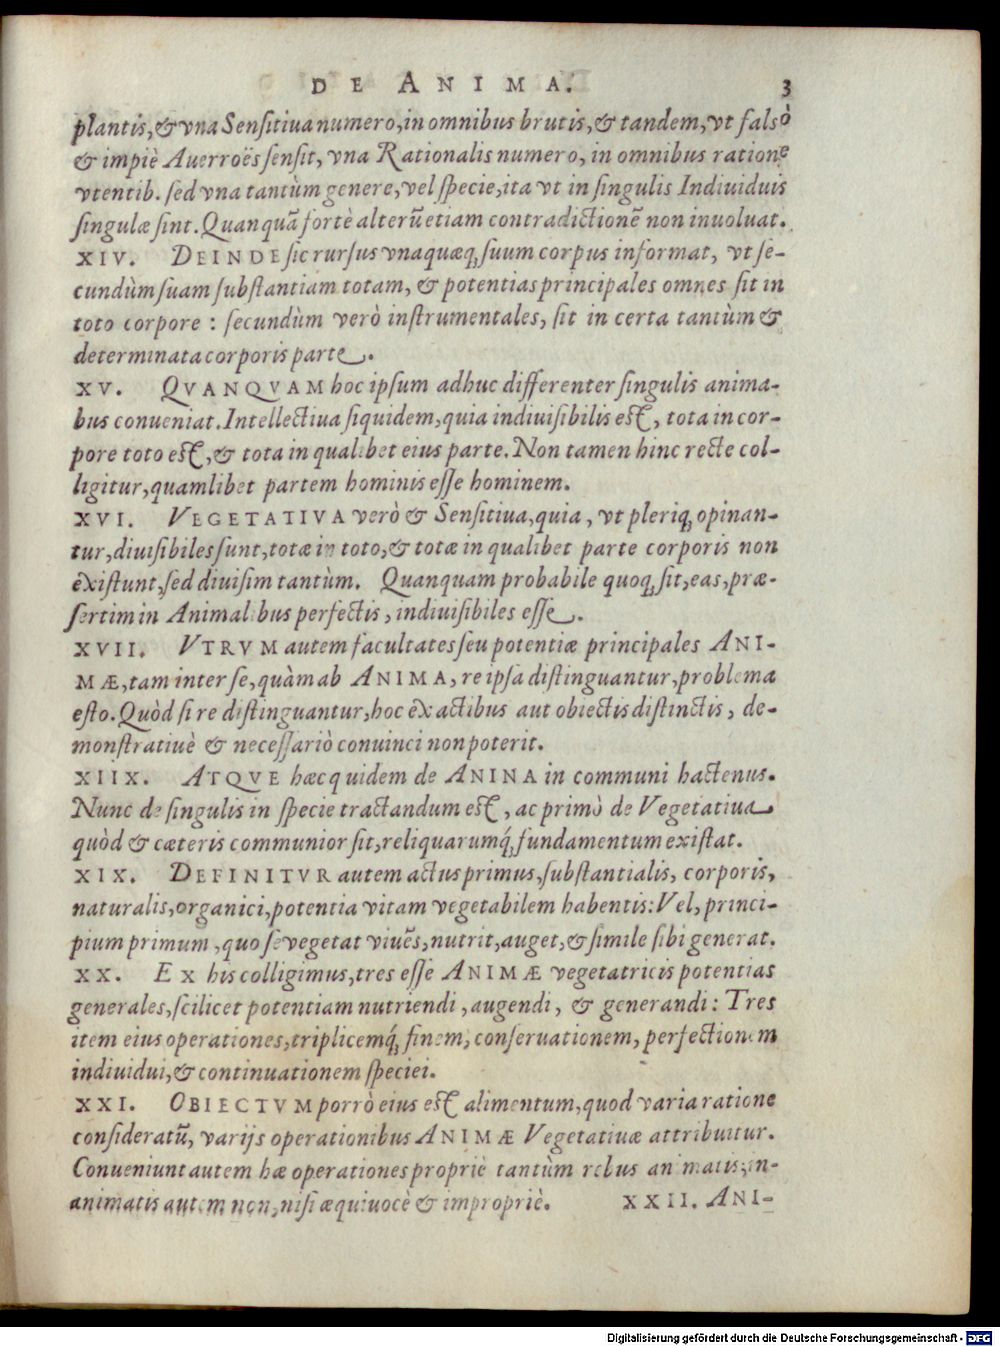 DE ANIMA. 3
plantis, & vna Sensitiua numero, in omnibus brutis, & tandem, vt falsò
& impiè Auerroës sensit, vna Rationalis numero, in omnibus ratione
vtentib. sed vna tantùm genere, vel specie, ita vt in singulis Indiuiduis
singulæ sint. Quanquã fortè alterũ etiam contradictionẽ non inuoluat.
XIV. DEINDE sic rursus vnaquæq; suum corpus informat, vt se-
cundùm suam substantiam totam, & potentias principales omnes sit in
toto corpore : secundùm verò instrumentales, sit in certa tantùm &
determinata corporis parte.
XV. QVANQVAM hoc ipsum adhuc differenter singulis anima-
bus conueniat. Intellectiua siquidem, quia indiuisibilis est, tota in cor-
pore toto est, & tota in qualibet eius parte. Non tamen hinc recte col-
ligitur, quamlibet partem hominis esse hominem.
XVI. VEGETATIVA verò & Sensitiua, quia, vt pleriq; opinan-
tur, diuisibiles sunt, totæ in toto, & totæ in qualibet parte corporis non
existunt, sed diuisim tantùm. Quanquam probabile quoq; sit, eas, præ-
sertim in Animalibus perfectis, indiuisibiles esse.
XVII. VTRVM autem facultates seu potentiæ principales ANI-
MÆ, tam inter se, quàm ab ANIMA, re ipsa distinguantur, problema
esto. Quòd si re distinguantur, hoc ex actibus aut obiectis distinctis, de-
monstratiuè & necessariò conuinci non poterit.
XIIX. ATQVE hæc quidem de ANINA in communi hactenus.
Nunc de singulis in specie tractandum est, ac primò de Vegetatiua
quòd & cæteris communior sit, reliquarumq́; fundamentum existat.
XIX. DEFINITVR autem actus primus, substantialis, corporis,
naturalis, organici, potentia vitam vegetabilem habentis: Vel, princi-
pium primum, quo se vegetat viuẽs, nutrit, auget, & simile sibi generat.
XX. EX his colligimus, tres esse ANIMÆ vegetatricis potentias
generales, scilicet potentiam nutriendi, augendi, & generandi: Tres
item eius operationes, triplicemq́; finem, conseruationem, perfectionem
indiuidui, & continuationem speciei.
XXI. OBIECTVM porrò eius est alimentum, quod varia ratione
consideratũ, varijs operationibus ANIMÆ Vegetatiuæ attribuitur.
Conueniunt autem hæ operationes propriè tantùm rebus animatis, in-
animatis autem non, nisi æquiuocè & impropriè. XXII. ANI-
Digitalisierung gefördert durch die Deutsche Forschungsgemeinschaft - DFG